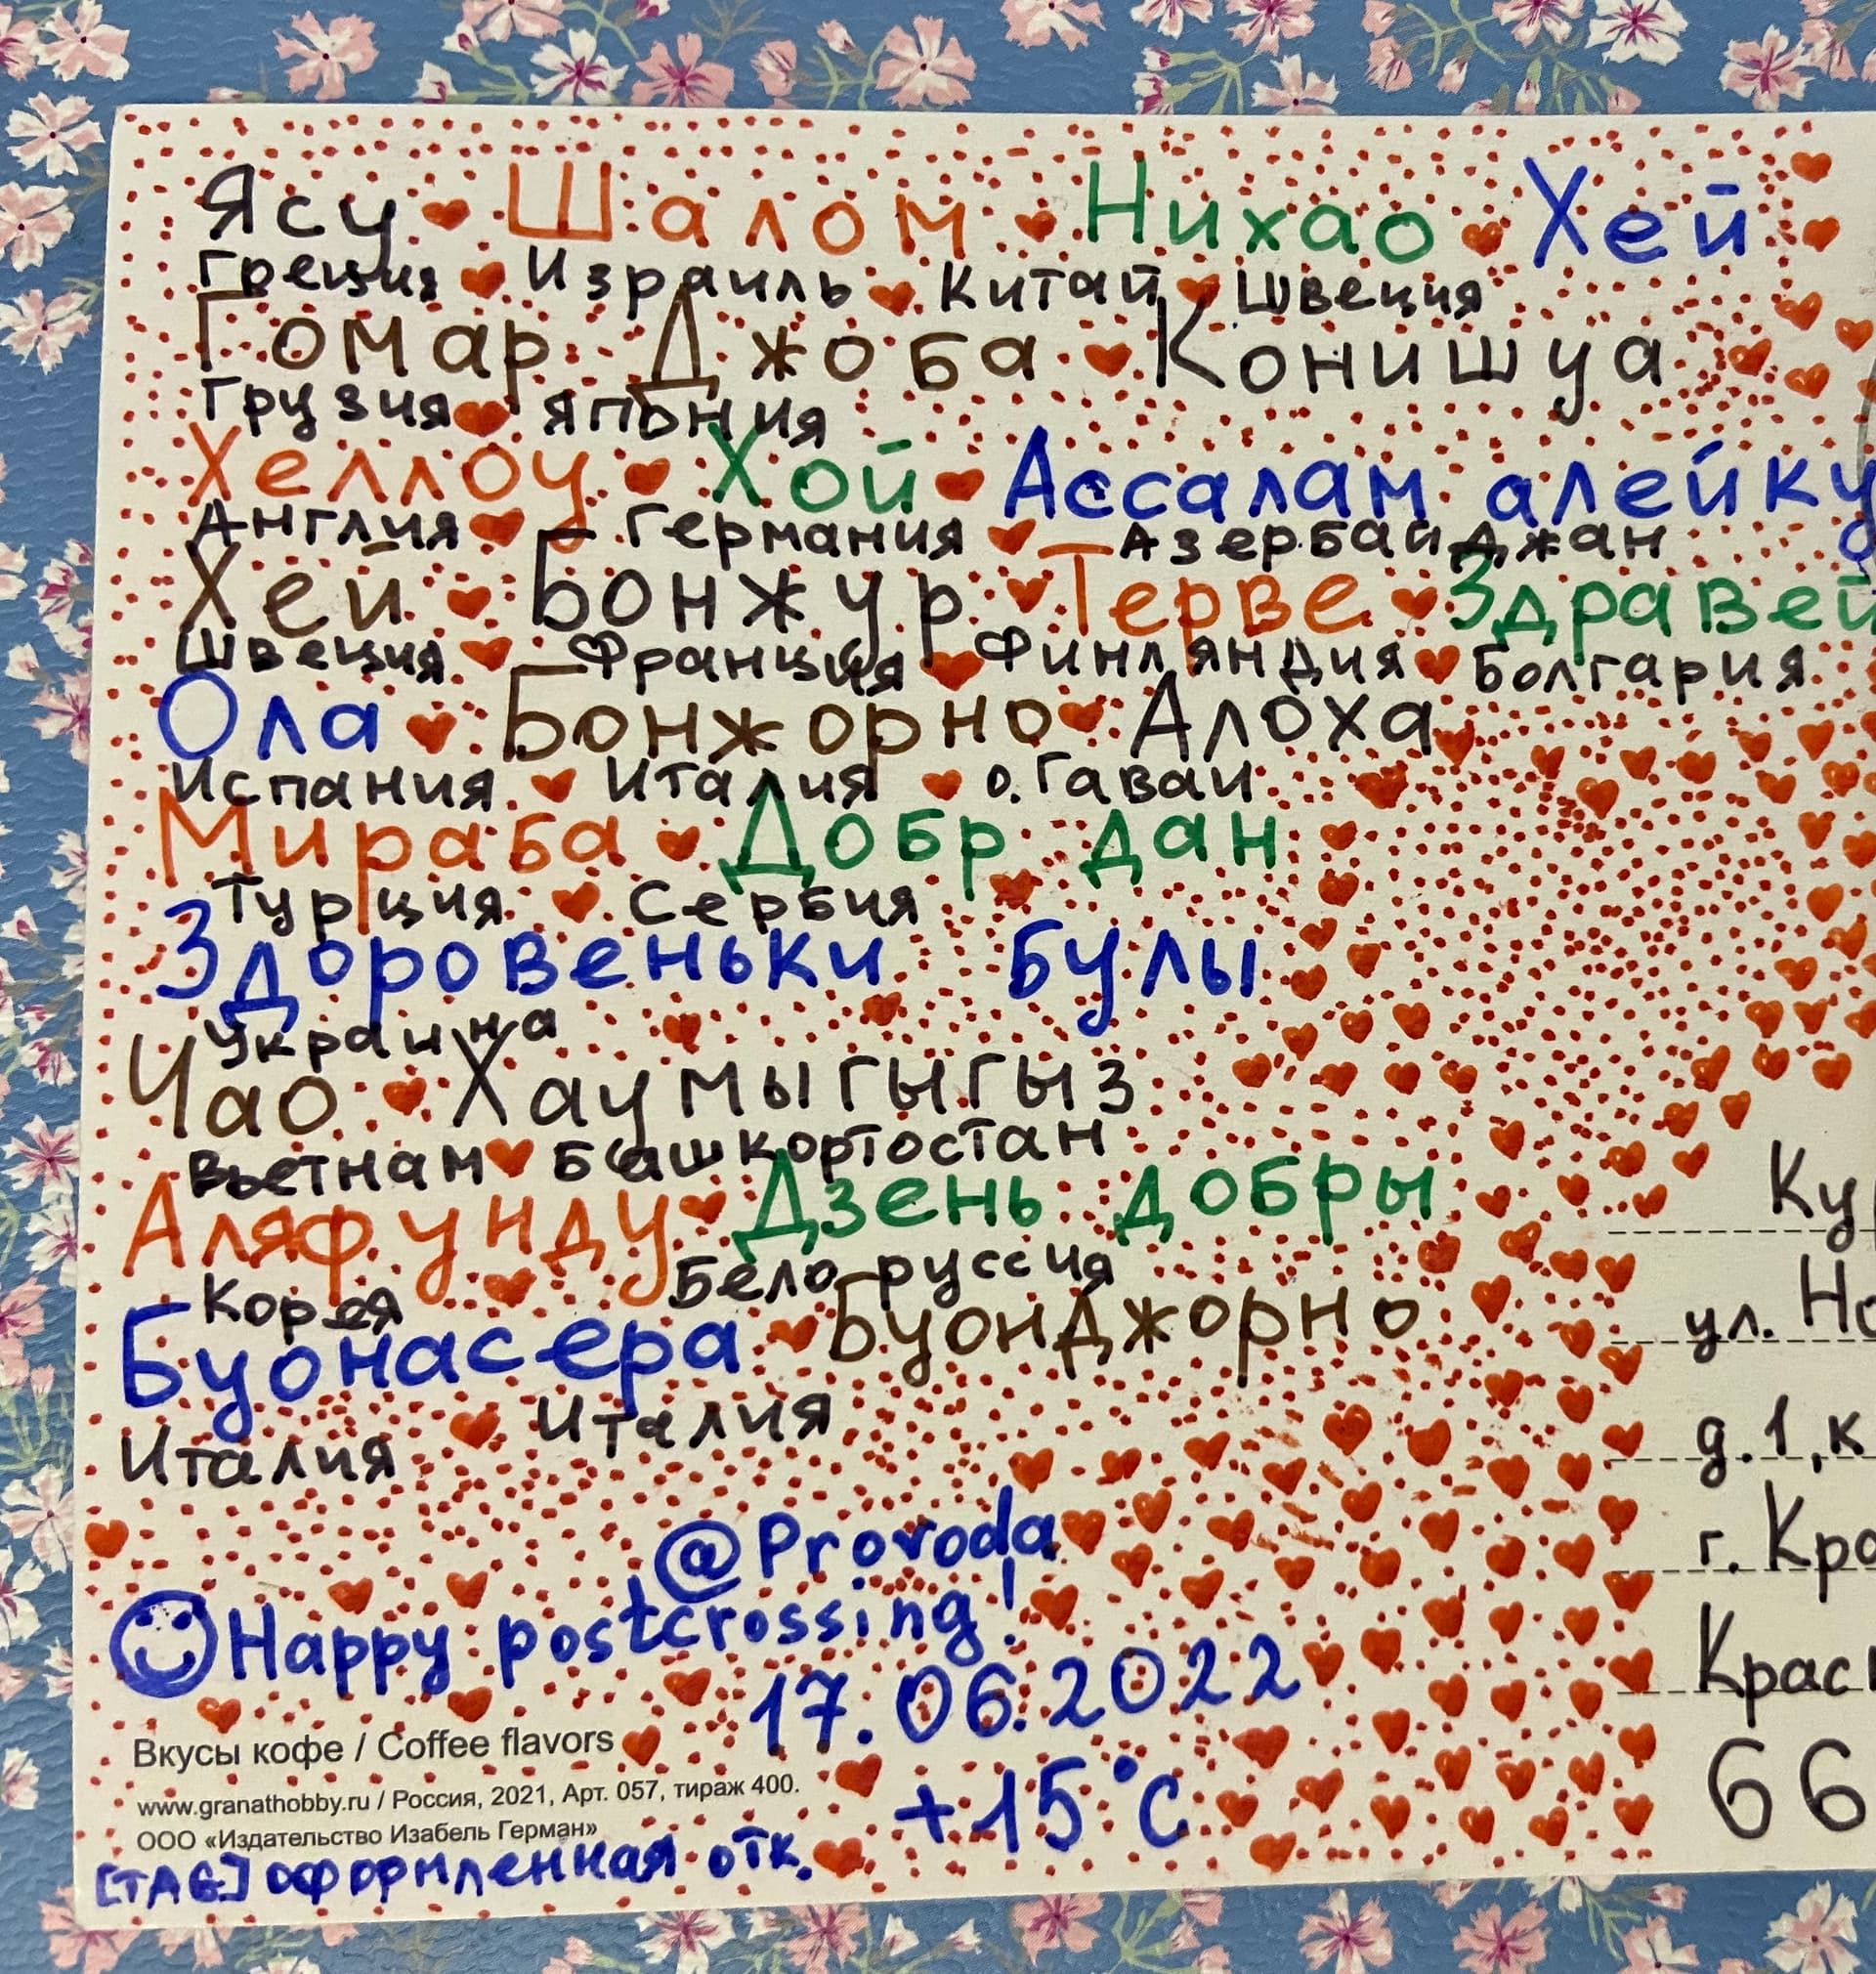 Ясу Шалом Нихао Хей
Греция Израиль Китай Швеция
Гомар Джоба Конишуа
Грузия Япония
Хеллоу Хой Ассалам алейку
Англия Германия Азербайджан
Хей Бонжур Терве Здравей
Швеция Франция Финляндия Болгария
Ола Бонжорно Алоха
Испания Италия о.Гаваи
Мираба Добр дан
Турция Сербия
Здоровеньки булы
Украина
Чао Хаумыгыгыз
Вьетнам Башкортостан
Аляфунду Дзень добры
Корея Белоруссия
Буонасера Буонджорно
Италия Италия
@Provoda
Happy postcrossing!
17.06.2022
+15°C
Вкусы кофе / Coffee flavors
www.granathobby.ru / Россия, 2021, Арт. 057, тираж 400.
ООО «Издательство Изабель Герман»
[TAG] оформленная отк.
Ку
ул. Но
д.1, к
г. Кра
Крас
66